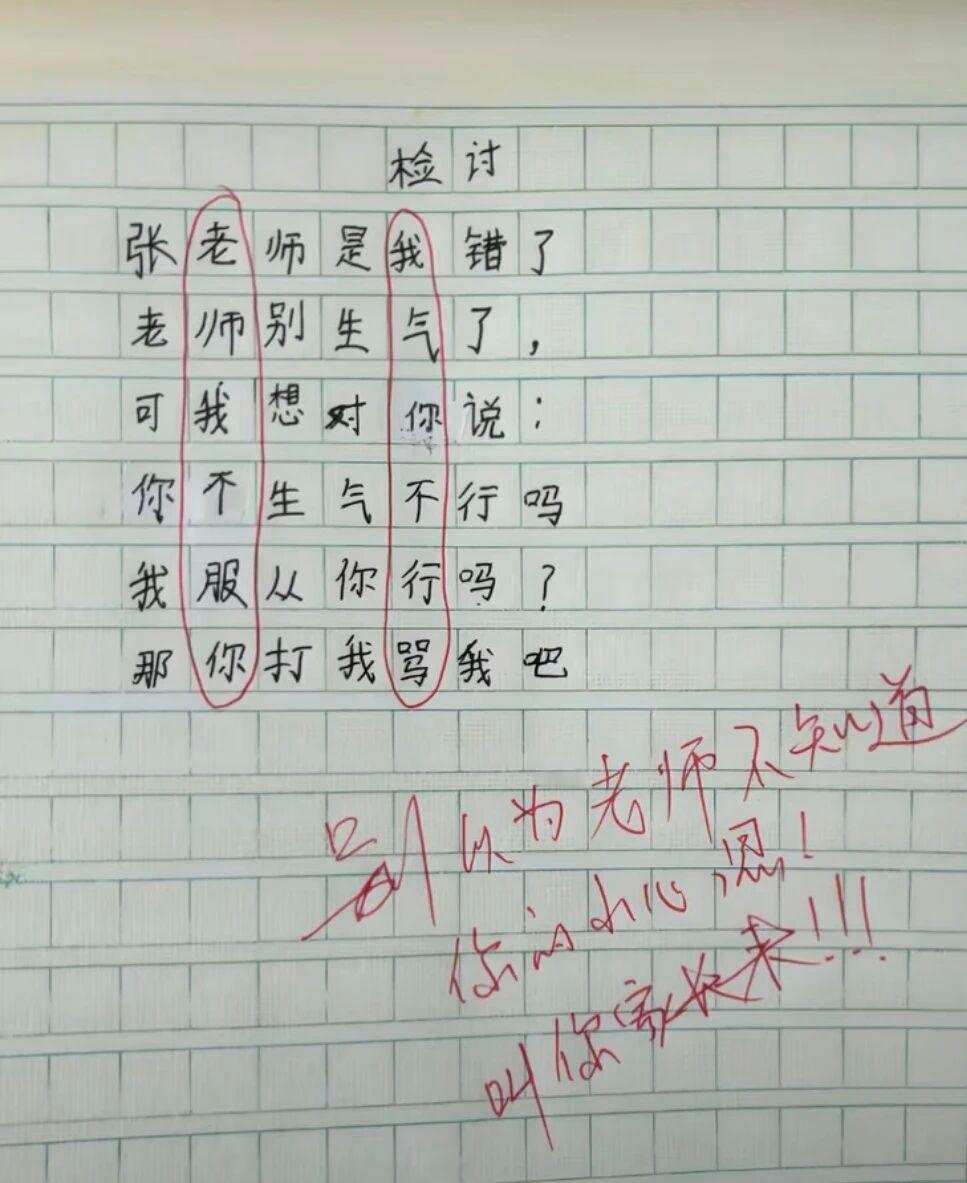 检讨
张老师是我错了
老师别生气了，
可我想对你说：
你不生气不行吗
我服从你行吗？
那你打我骂我吧
别以为老师不知道
你的小心思！
叫你家长来!!!